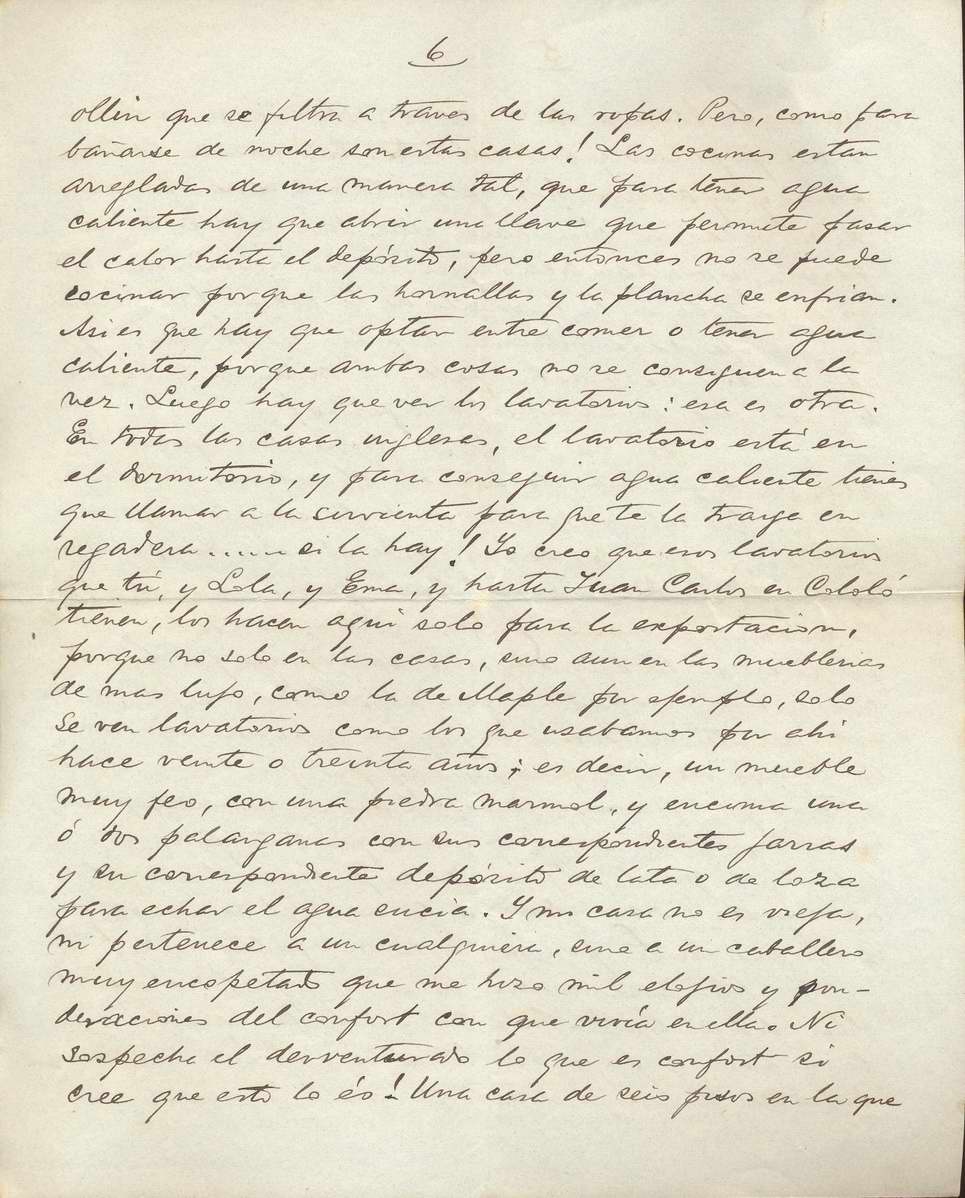 6
ollin que se filtra a traves de las ropas. Pero, como para
bañarse de noche son estas casas! Las cocinas estan
arregladas de una manera tal, que para tener agua
caliente hay que abrir una llave que permite pasar
el calor hasta el depósito, pero entonces no se puede
cocinar porque las hornallas y la plancha se enfrian.
Asi es que hay que optar entre comer o tener agua
caliente, porque ambas cosas no se consiguen a la
vez. Luego hay que ver los lavatorios: esa es otra.
En todas las casas inglesas, el lavatorio está en
el dormitorio, y para conseguir agua caliente tienes
que llamar a la sirvienta para que te la traiga en
regadera...... si la hay! Yo creo que esos lavatorios
que tú, y Lola, y Ema, y hasta Juan Carlos en Cololó
tienen, los hacen aqui solo para la exportacion,
porque no solo en las casas, sino aun en las mueblerias
de mas lujo, como la de Maple por ejemplo, solo
se ven lavatorios como los que usabamos por ahi
hace veinte o treinta años; es decir, un mueble
muy feo, con una piedra marmol, y encima una
ó dos palanganas con sus correspondientes jarras
y su correspondiente depósito de lata o de loza
para echar el agua sucia. Y mi casa no es vieja,
ni pertenece a un cualquiera, sino a un caballero
muy encopetado que me hizo mil elojios y pon-
deraciones del confort con que vivía en ella. Ni
sospecha el desventurado lo que es confort si
cree que esto lo és! Una casa de seis pisos en la que